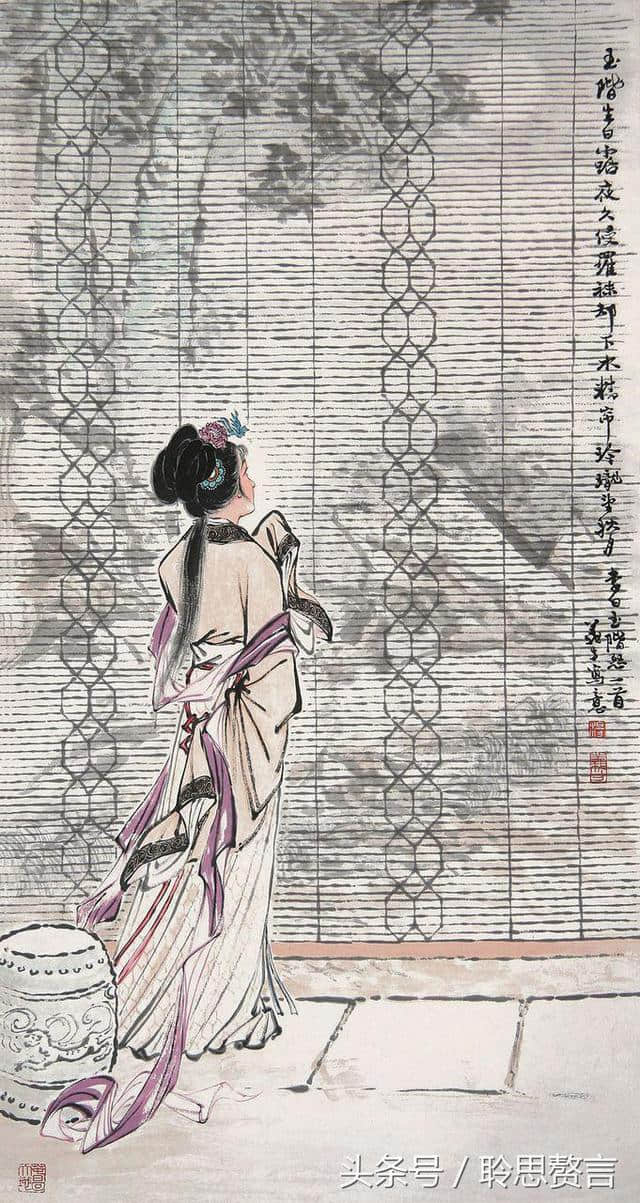 玉階生白露夜久侵羅袜却下水精帘玲瓏望秋月
李白玉階怨一首
寫意
头条号 / 聆思赘言